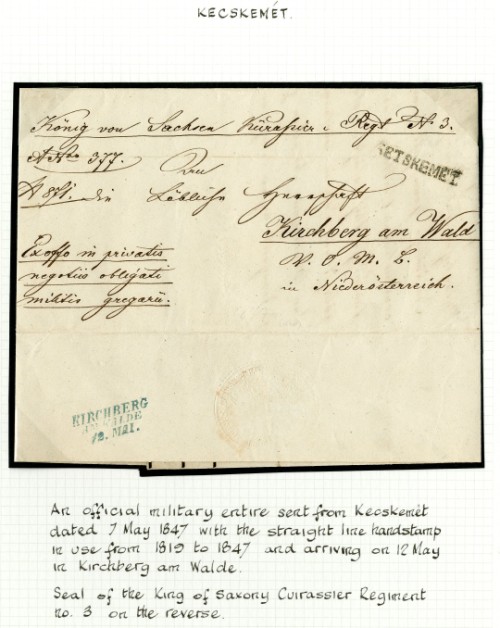 KECSKEMÉT.
König von Sachsen Kürassier Regt N. 3.
KETSKEMÉT
No 377. An
die Löbliche Herrschaft
Kirchberg am Wald
V. O. M. B.
in Niederösterreich.
Exoffo in privatis
negotiis obligati
militis gregarii.
KIRCHBERG
AM WALDE
12. MAI.
An official military entire sent from Kecskemét
dated 7 May 1847 with the straight line handstamp
in use from 1819 to 1847 and arriving on 12 May
in Kirchberg am Walde.
Seal of the King of Saxony Cuirassier Regiment
no. 3 on the reverse.